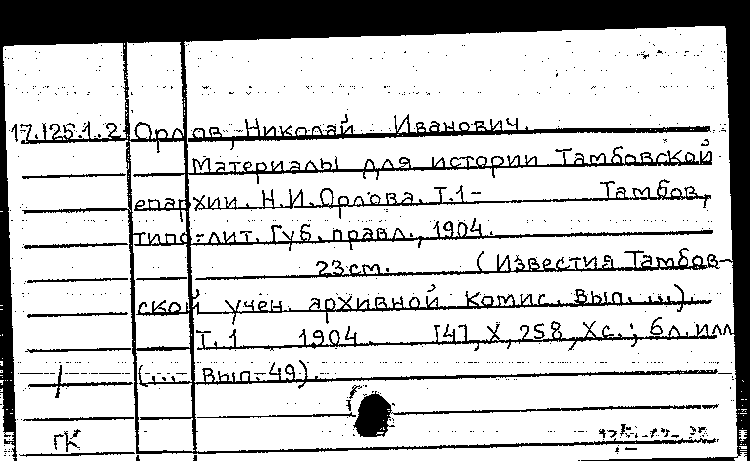 17.125.1.2 Орлов, Николай Иванович.
Материалы для истории Тамбовской
епархии. Н.И.Орлова. Т.1- Тамбов,
типо-лит. Губ. правл., 1904.
23 cm. (Известия Тамбов-
ской учен. архивной комис. Вып. ...).
Т.1 1904. [4], X, 258, X с.; 6 л. илл
(... Вып. 49).
ГК